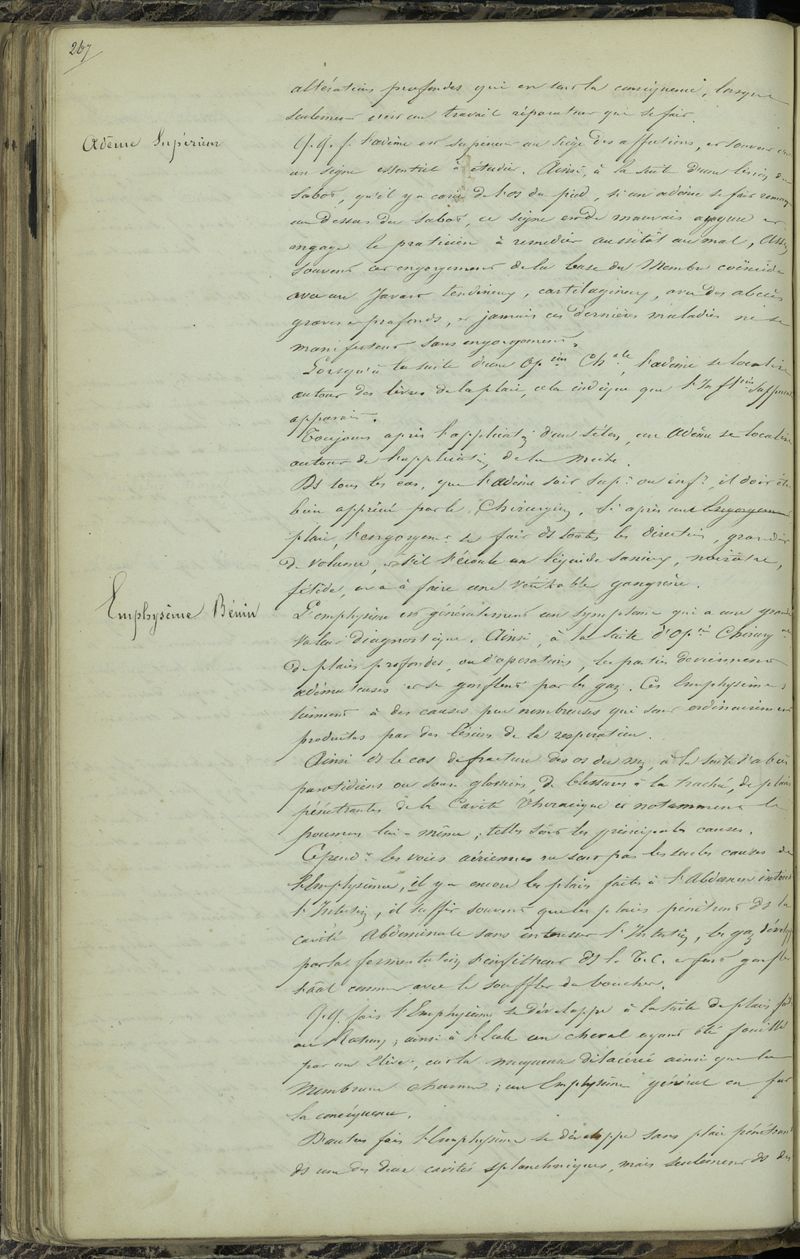 267
altérations profondes qui en sont la conséquence, lorsque
seulement c'est un travail réparateur qui se fait.
Œdème Supérieur
Q.q.f. l'œdème est supérieur au siège des affections, et souvent
un signe essentiel à étudier. Ainsi, à la suite d'une lésion du
sabot, qu'il y a carie de l'os du pied, si un œdème se fait
au dessus du sabot, ce signe est de mauvais augure et
engage le praticien à remédier aussitôt au mal, Assez
souvent ces engorgements de la base du Membre coïncide
avec un Javart tendineux, cartilagineux, avec des abcès
graves et profonds, et jamais ces dernières maladies ne se
manifestent sans engorgement.
Lorsqu'à la suite d'une Op.ion Ch.ale, l'œdème se localise
autour des lèvres de la plaie, cela indique que l'Infl.ion
apparait.
Toujours après l'applicat. d'un séton, un Œdème se localise
autour de l'application de la mèche.
Ds tous les cas, que l'œdème soit sup.r ou inf.r, il doit être
bien apprécié par le Chirurgien, si après une
plaie, l'engorgem.t se fait ds toutes les directions,
de volume, et s'il s'écoule un liquide sanieux, noirâtre,
fétide, on a à faire une véritable gangrène.
Emphysème Bénin
L'emphysème est généralement un symptôme qui a une grande
valeur diagnostique. Ainsi, à la suite d'Op.on Chirurg.
de plaies profondes, ou d'opérations, les parties deviennent
œdémateuses et se gonflent par les gaz. Ces Emphysèmes
tiennent à des causes peu nombreuses qui sont ordinairement
produites par des lésions de la respiration.
Ainsi ds le cas de fracture des os du nez, à la suite d'abcès
parotidiens ou sous glossiens, de blessures à la trachée, de plaies
pénétrantes de la Cavité Thoracique et notamment le
poumon lui-même, telles sont les principales causes.
Cepend.t les voies aériennes ne sont pas les seules causes de
l'Emphysème, il y a encore les plaies faites à l'Abdomen
l'Intestin, il suffit souvent que les plaies pénètrent ds la
cavité Abdominale sans intéresser l'Intestin, les gaz
par la fermentation s'infiltrent ds le T.C. et font gonfler
l'anal comme avec le soufflet du boucher.
Q.q. fois l'Emphysème se développe à la suite de plaies
au Rectum; ainsi à l'Ecole un cheval ayant été fouillé
par un Elève, eut la muqueuse dilacérée ainsi que la
Membrane charnue; un Emphysème général en fut
la conséquence.
D'autres fois l'Emphysème se développe sans plaie pénétrant
ds une des deux cavités splanchniques, mais seulement ds des